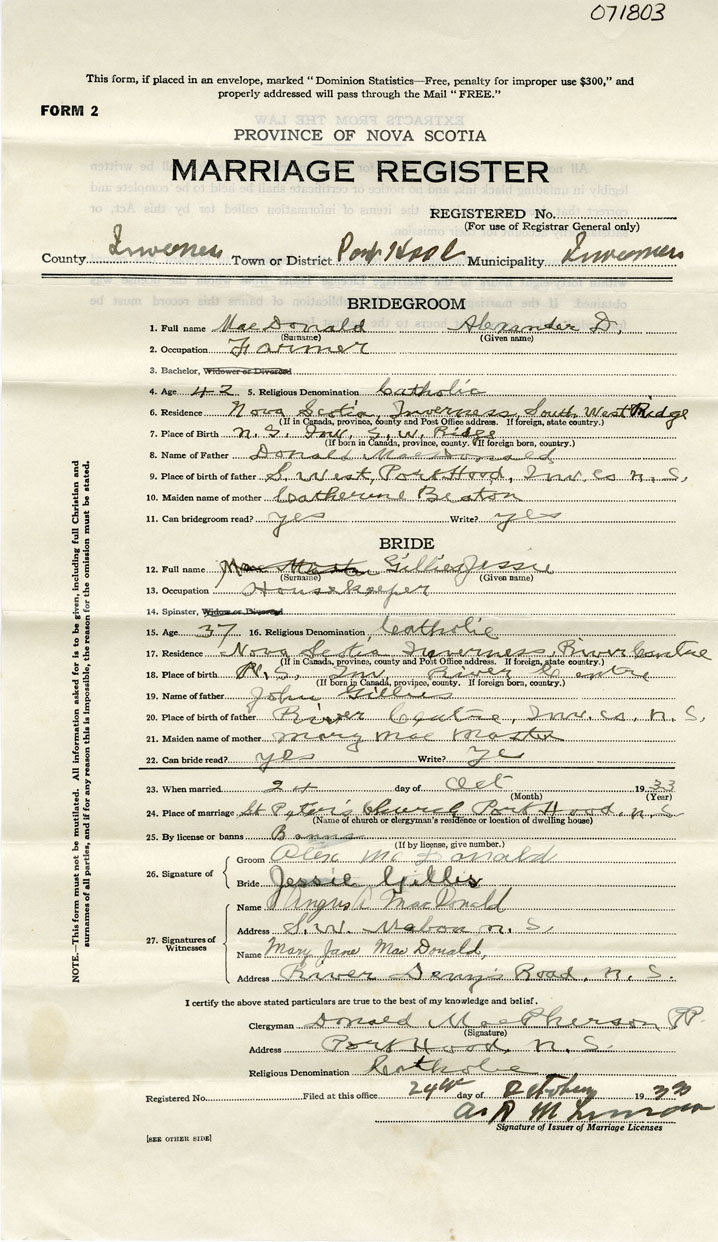 071803
This form, if placed in an envelope, marked "Dominion Statistics—Free, penalty for improper use $300," and
properly addressed will pass through the Mail "FREE."
FORM 2
PROVINCE OF NOVA SCOTIA
MARRIAGE REGISTER
REGISTERED No.
(For use of Registrar General only)
County Inverness Town or District Port Hood Municipality Inverness
BRIDEGROOM
1. Full name MacDonald Alexander D.
(Surname) (Given name)
2. Occupation Farmer
3. Bachelor, Widower or Divorced
4. Age 42 5. Religious Denomination Catholic
6. Residence Nova Scotia, Inverness, South West Ridge
(If in Canada, province, county and Post Office address. If foreign, state country.)
7. Place of Birth N.S. Inv. S.W. Ridge
(If born in Canada, province, county. If foreign born, country.)
8. Name of Father Donald MacDonald
9. Place of birth of father S. West, Port Hood, Inv. co N.S.
10. Maiden name of mother Catherine Beaton
11. Can bridegroom read? yes Write? yes
BRIDE
12. Full name Gillies Jessie
(Surname) (Given name)
13. Occupation Housekeeper
14. Spinster, Widow or Divorced
15. Age 37 16. Religious Denomination Catholic
17. Residence Nova Scotia Inverness, River Centre
(If in Canada, province, county and Post Office address. If foreign, state country.)
18. Place of Birth N.S. Inv. River Centre
(If born in Canada, province, county. If foreign born, country.)
19. Name of father John Gillies
20. Place of birth of father River Centre, Inv. co. N.S.
21. Maiden name of mother Mary Mac Master
22. Can bride read? yes Write? yes
23. When married 24 day of Oct 1933
(Month) (Year)
24. Place of marriage St Peter's Church Port Hood, N.S
(Name of church or clergyman's residence or location of dwelling house)
25. By license or banns Banns
(If by license, give number.)
26. Signature of Groom Alex McDonald
Bride Jessie Gillis
27. Signatures of Witnesses Name Angus A MacDonald
Address S.W. Mabou N.S.
Name Mary Jane MacDonald,
Address River Denys Road, N.S.
I certify the above stated particulars are true to the best of my knowledge and belief.
Clergyman Donald MacPherson P.P.
(Signature)
Address Port Hood, N.S.
Religious Denomination Catholic
Registered No. Filed at this office 24th day of October 1933
Signature of Issuer of Marriage Licenses
[SEE OTHER SIDE]
NOTE.—This form must not be mutilated. All information asked for is to be given, including full Christian and
surnames of all parties, and if for any reason this is impossible, the reason for the omission must be stated.